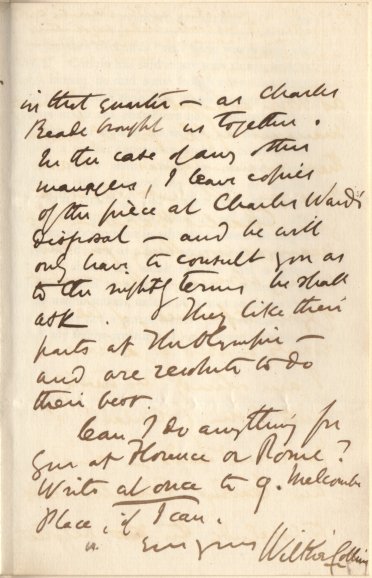 in that quarter – as Charles
Reade brought us together.
In the case of any other
managers, I leave copies
of the piece at Charles Ward's
disposal – and he will
only have to consult you as
to the nightly terms he shall
ask. They like their
parts at The Olympic –
and are resolute to do
their best.
Can I do anything for
you at Florence or Rome?
Write at once to 9. Melcombe
Place, if I can.
Ever yours Wilkie Collins